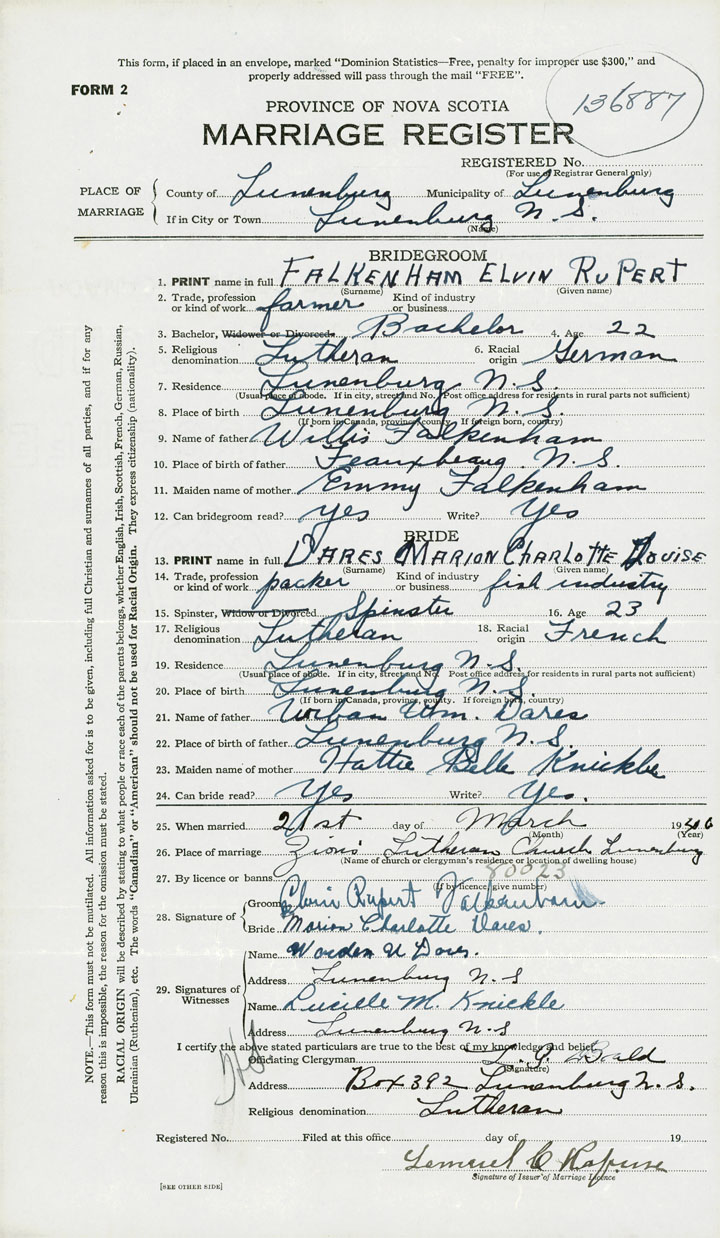 This form, if placed in an envelope, marked "Dominion Statistics—Free, penalty for improper use $300," and
properly addressed will pass through the mail "FREE".
FORM 2
136887
PROVINCE OF NOVA SCOTIA
MARRIAGE REGISTER
REGISTERED No.
(For use of Registrar General only)
PLACE OF MARRIAGE
County of Lunenburg Municipality of Lunenburg
If in City or Town Lunenburg N. S.
(Name)
BRIDEGROOM
1. PRINT name in full FALKENHAM ELVIN RUPERT
(Surname) (Given name)
2. Trade, profession or kind of work farmer Kind of industry or business
3. Bachelor, Widower or Divorced Bachelor 4. Age 22
5. Religious denomination Lutheran 6. Racial origin German
7. Residence Lunenburg N. S.
(Usual place of abode. If in city, street and No. Post office address for residents in rural parts not sufficient)
8. Place of birth Lunenburg N. S.
(If born in Canada, province, county. If foreign born, country)
9. Name of father Willis Falkenham
10. Place of birth of father N. S.
11. Maiden name of mother Emmy Falkenham
12. Can bridegroom read? yes Write? Yes
BRIDE
13. PRINT name in full DARES MARION CHARLOTTE LOUISE
(Surname) (Given name)
14. Trade, profession or kind of work packer Kind of industry or business fish industry
15. Spinster, Widow or Divorced Spinster 16. Age 23
17. Religious denomination Lutheran 18. Racial origin French
19. Residence Lunenburg N. S.
(Usual place of abode. If in city, street and No. Post office address for residents in rural parts not sufficient)
20. Place of birth Lunenburg N. S.
(If born in Canada, province, county. If foreign born, country)
21. Name of father Urban Wm. Dares
22. Place of birth of father Lunenburg N. S.
23. Maiden name of mother Hattie Belle Knickle
24. Can bride read? Yes Write? Yes.
25. When married 21st day of March 1940
(Month) (Year)
26. Place of marriage Zion's Lutheran Church Lunenburg
(Name of church or clergyman's residence or location of dwelling house)
27. By licence or banns 80023
(If by licence, give number)
28. Signature of
Groom Elvin Rupert Falkenham
Bride Marion Charlotte Dares.
29. Signatures of Witnesses
Name Worden U Dares.
Address Lunenburg N. S
Name Lucille M. Knickle
Address Lunenburg N. S
I certify the above stated particulars are true to the best of my knowledge and belief.
Officiating Clergyman Bald
(Signature)
Address Box 392 Lunenburg N. S.
Religious denomination Lutheran
Registered No. Filed at this office day of 19
Lemuel C Hapuse
Signature of Issuer of Marriage Licence
[SEE OTHER SIDE]
NOTE.—This form must not be mutilated. All information asked for is to be given, including full Christian and surnames of all parties, and if for any
reason this is impossible, the reason for the omission must be stated.
RACIAL ORIGIN will be described by stating to what people or race each of the parents belongs, whether English, Irish, Scottish, French, German, Russian,
Ukrainian (Ruthenian), etc. The words "Canadian" or "American" should not be used for Racial Origin. They express citizenship (nationality).